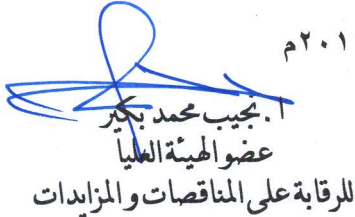 ٢٠١م
أ. نجيب محمد بكير
عضو الهيئة العليا
للرقابة على المناقصات و المزايدات